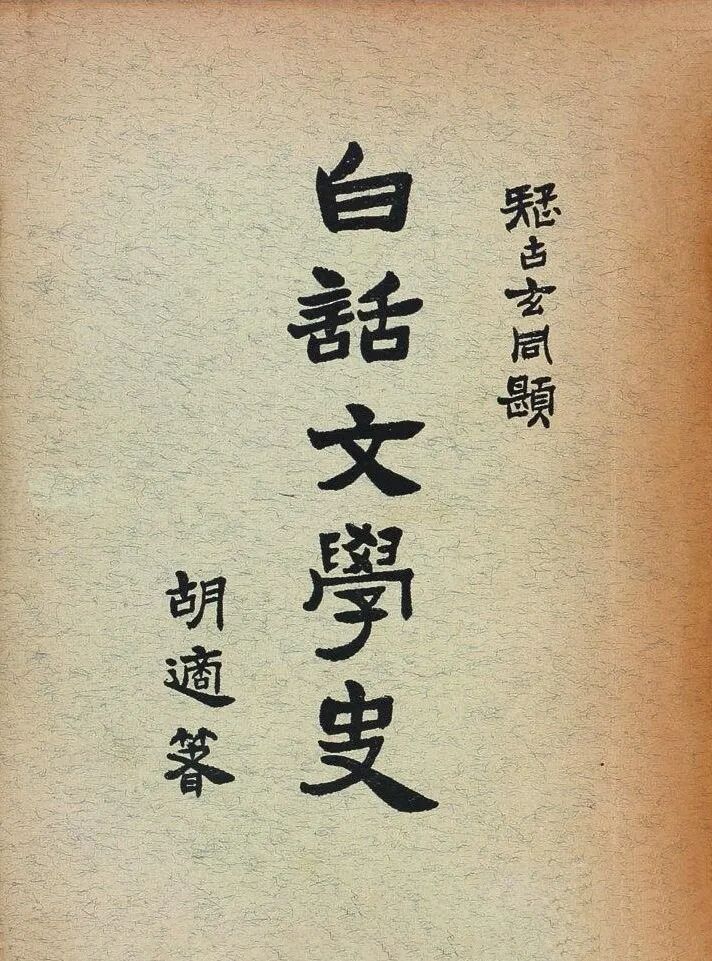 疑古玄同題
白話文學史
胡適著